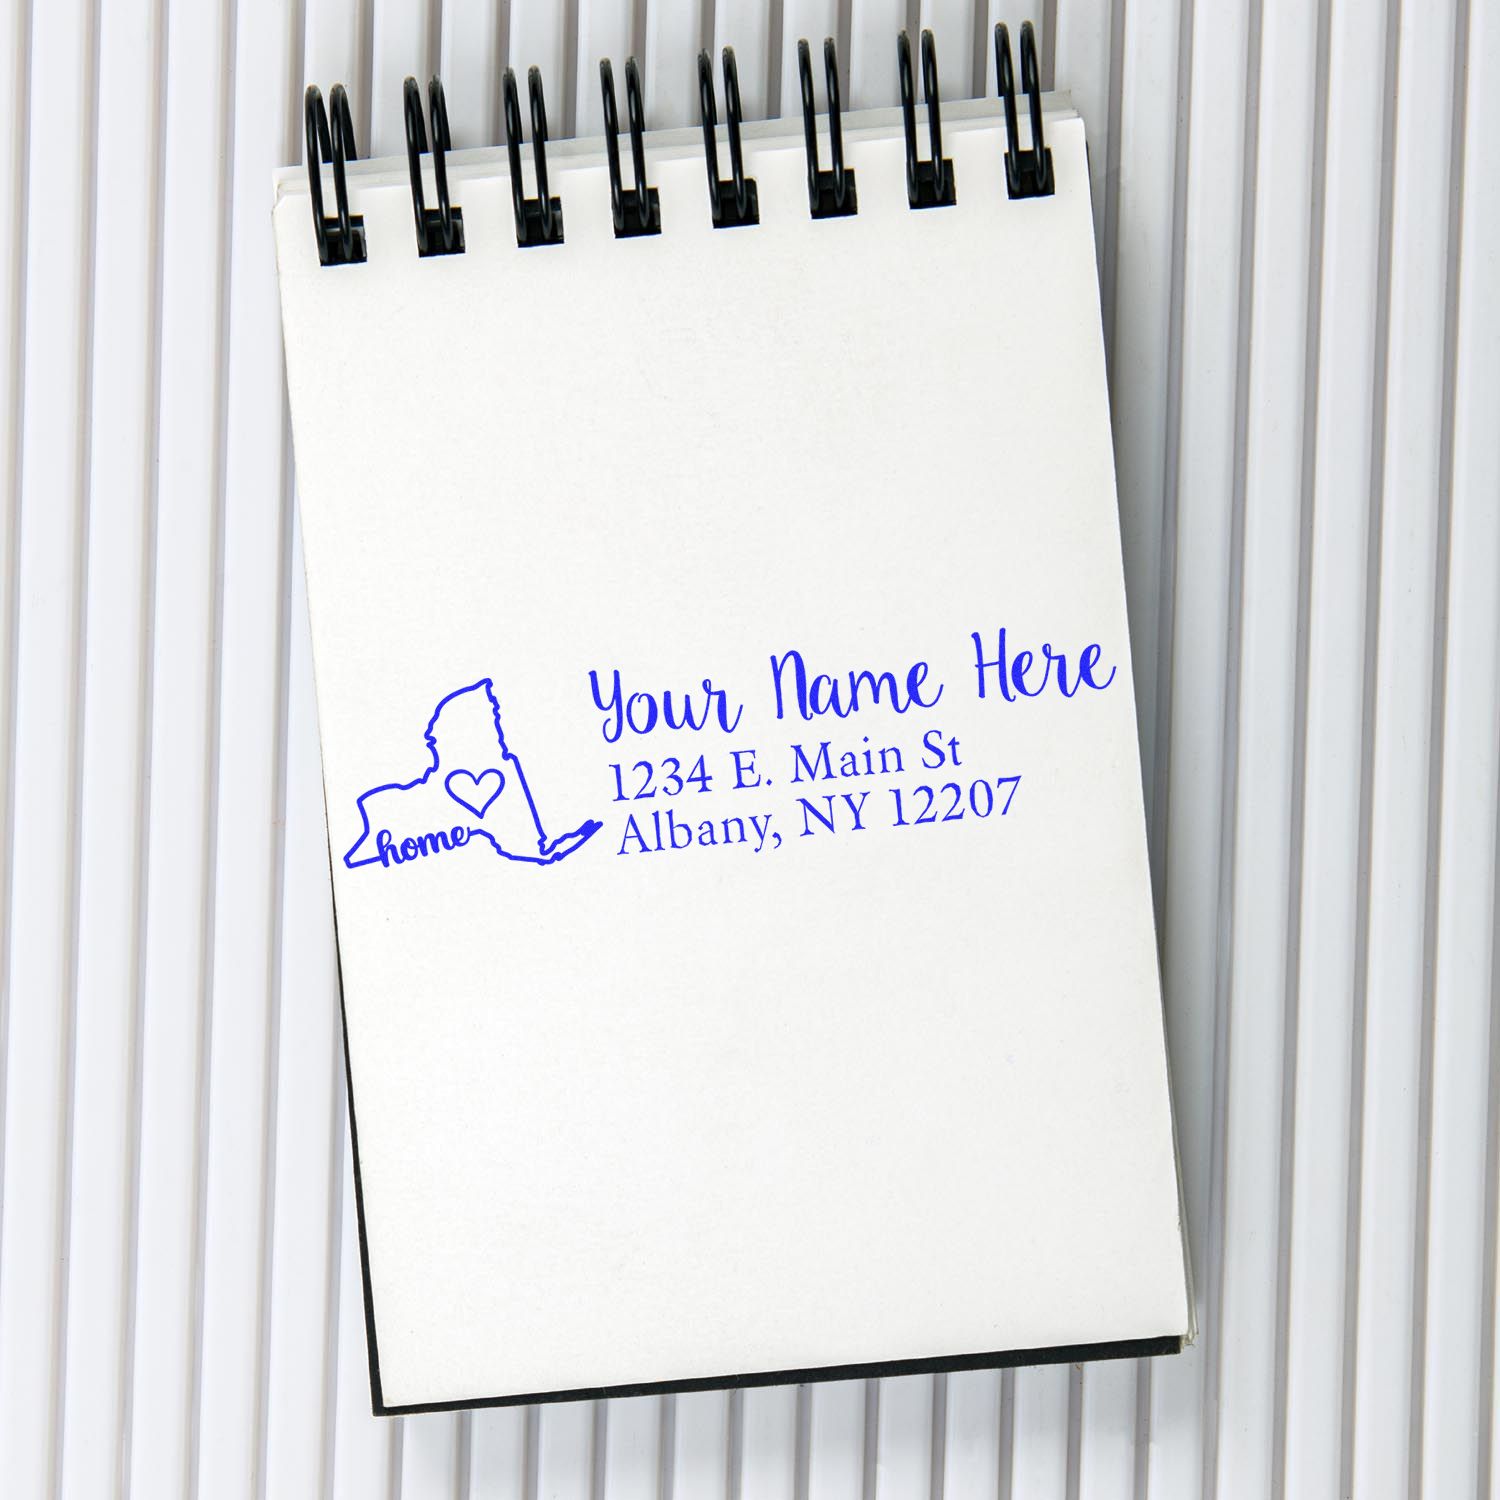 home
Your Name Here
1234 E. Main St
Albany, NY 12207